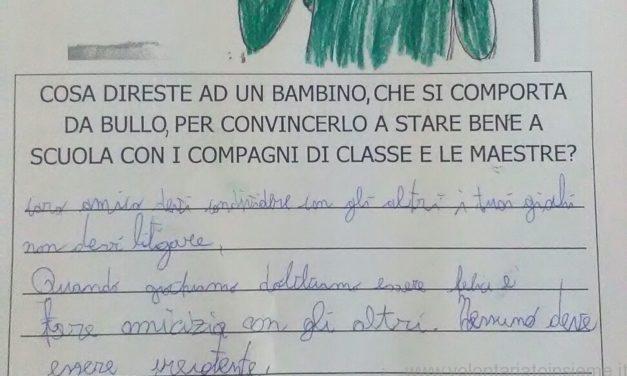 COSA DIRESTE AD UN BAMBINO, CHE SI COMPORTA
DA BULLO, PER CONVINCERLO A STARE BENE A
SCUOLA CON I COMPAGNI DI CLASSE E LE MAESTRE?
caro amico devi condividere con gli altri i tuoi giochi
non devi litigare,
Quando giochiamo dobbiamo essere felici e
fare amicizia con gli altri. Nessuno deve
essere
www.volontariatoinsieme.it